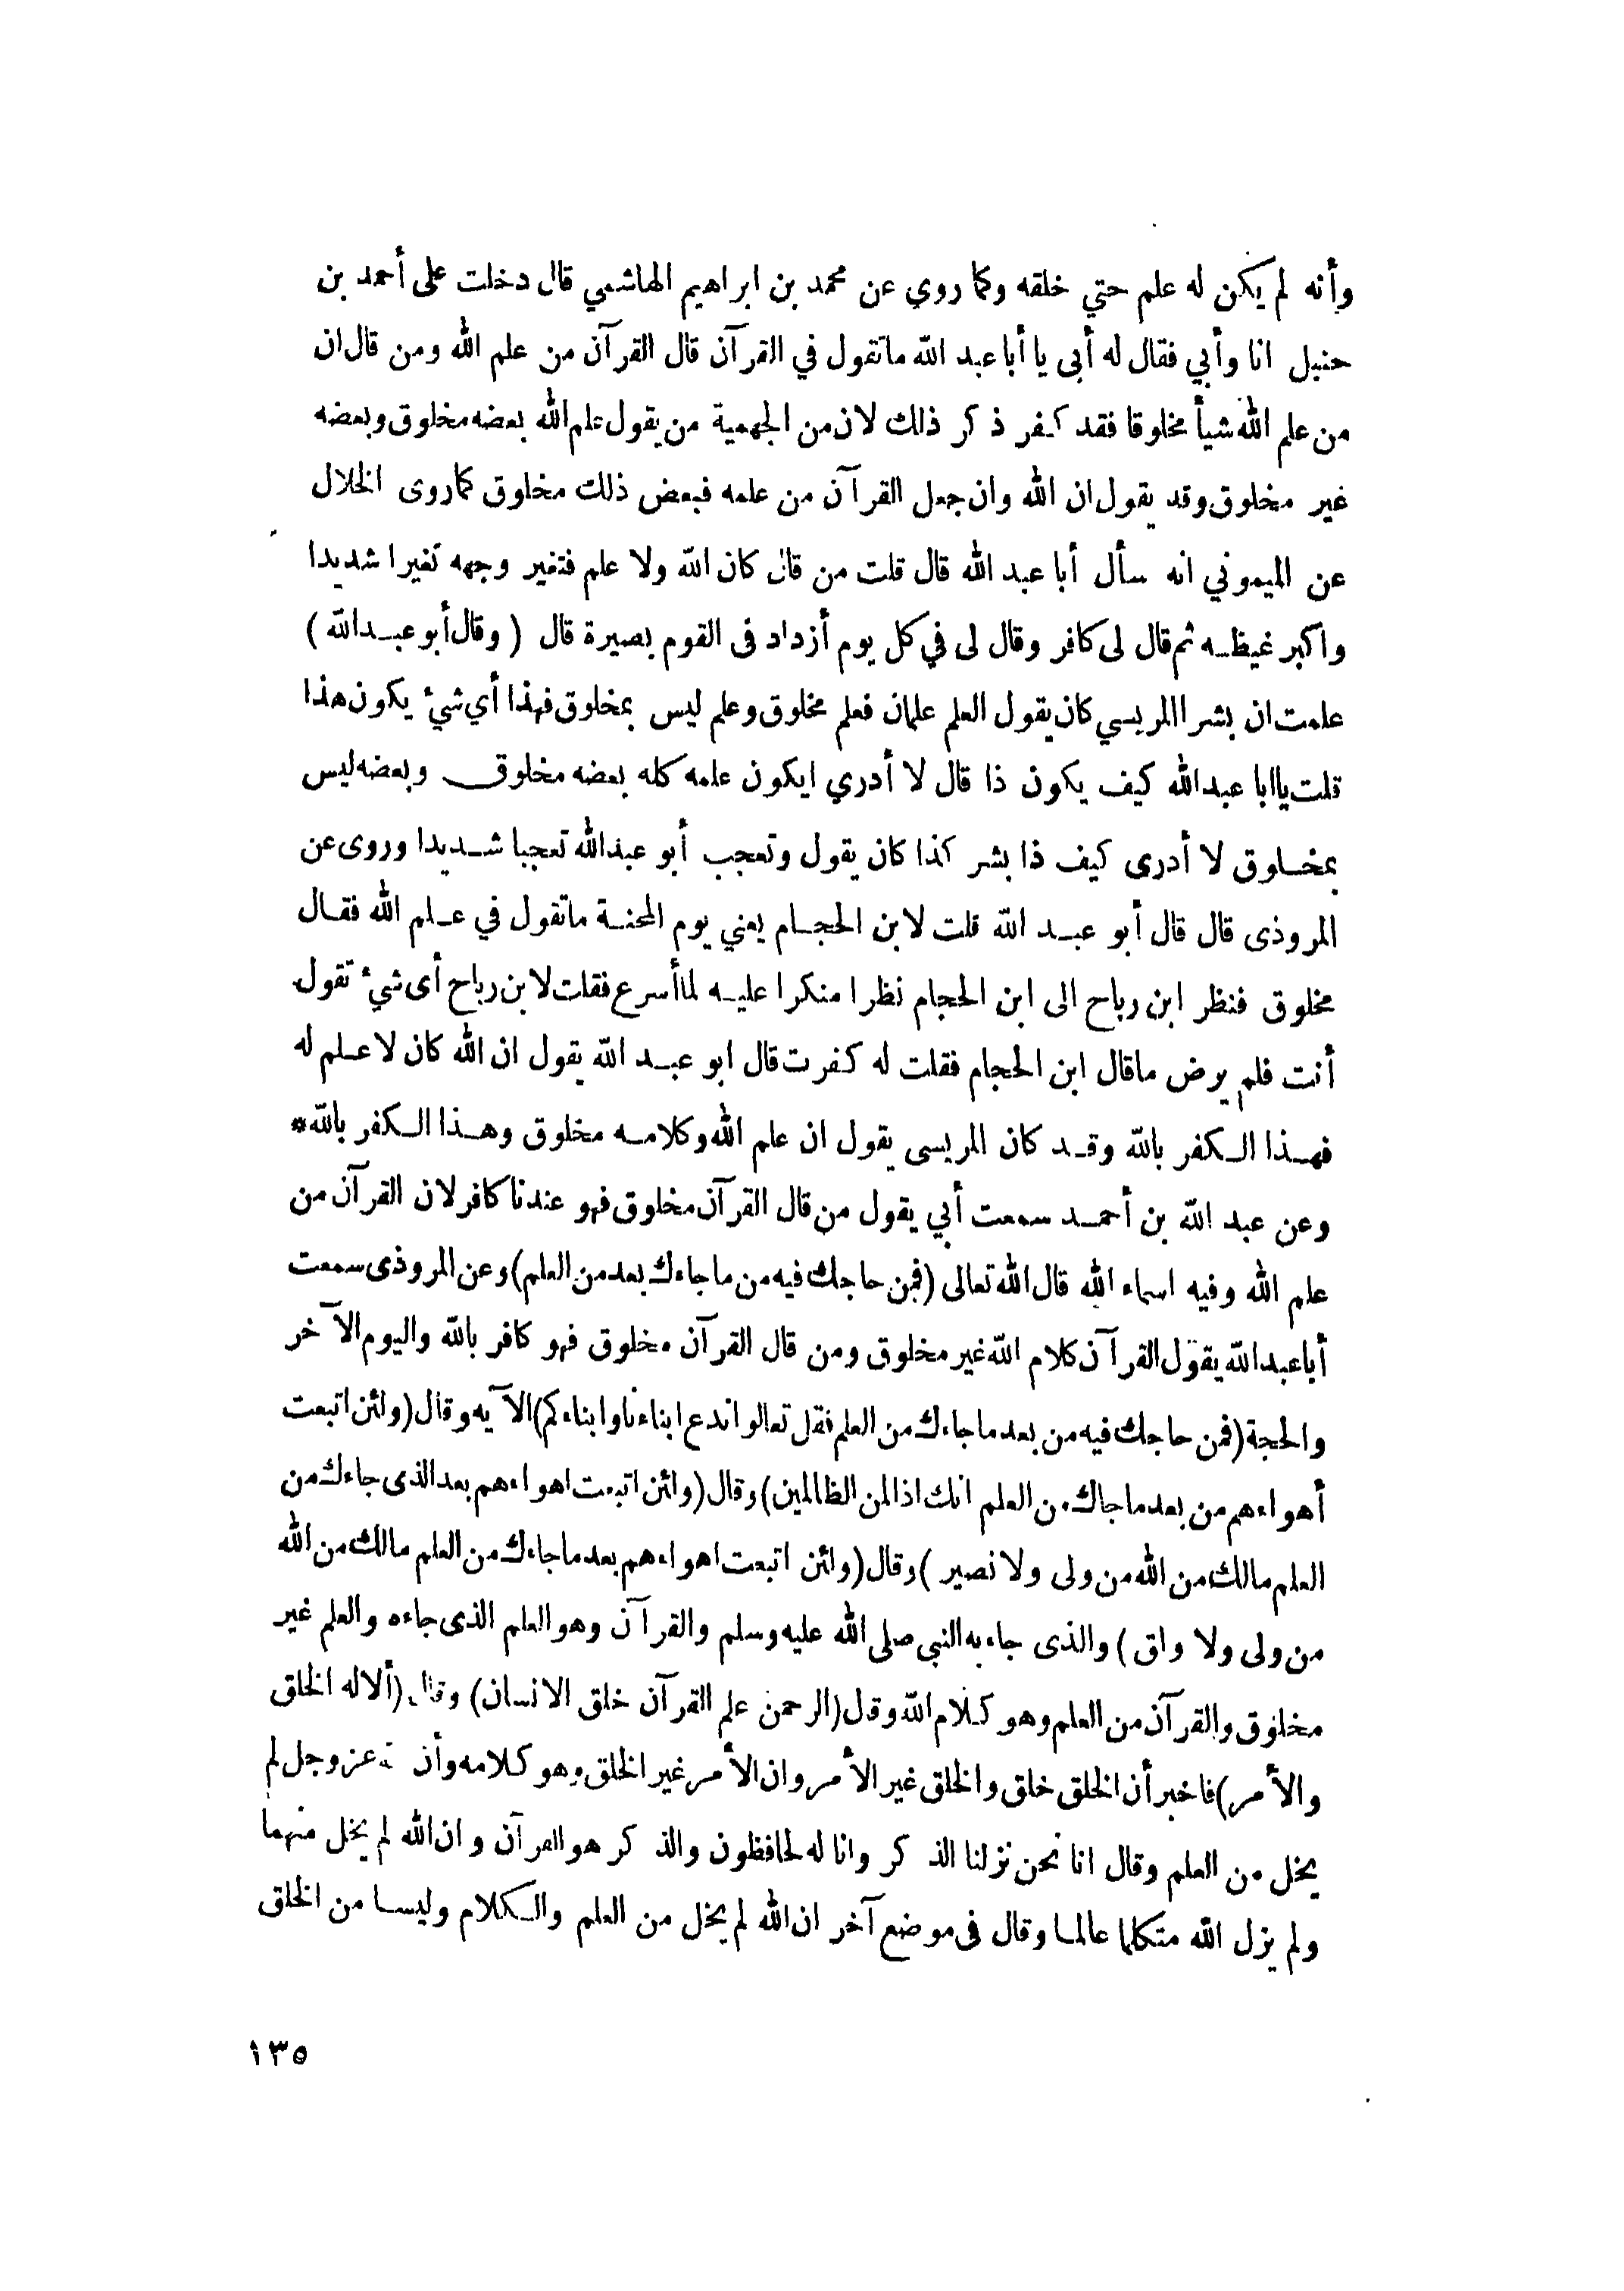 وأنه لم يكن له علم حتي خلقه وكما روي عن محمد بن ابراهيم الهاشمي قال دخلت على أحمد بن
حنبل انا وأبي فقال له أبى يا أبا عبد الله ماتقول في القرآن قال القرآن من علم الله ومن قال ان
من علم الله شيأ مخلوقا فقد كفر ذكر ذلك لان من الجهمية من يقول علم الله بعضه مخلوق وبعضه
غير مخلوق وقد يقول ان الله وان جعل القرآن من علمه فبعض ذلك مخلوق كما روى الخلال
عن الميموني انه سأل أبا عبد الله قال قلت من قال كان الله ولا علم فتغير وجهه تغيرا شديدا
واكبر غيظه ثم قال لى كافر وقال لى في كل يوم أزداد فى القوم بصيرة قال (وقال أبو عبد الله)
علمت ان بشرا المريسي كان يقول العلم علمان فعلم مخلوق وعلم ليس بمخلوق فهذا أي شيء يكون هذا
قلت يا ابا عبد الله كيف يكون ذا قال لا أدري ايكون علمه كله بعضه مخلوق وبعضه ليس
بمخلوق لا أدرى كيف ذا بشر كذا كان يقول وتعجب أبو عبد الله تعجبا شديدا وروى عن
المروذى قال قال أبو عبد الله قلت لابن الحجام يعني يوم المحنة ماتقول في علم الله فقال
مخلوق فنظر ابن رباح الى ابن الحجام نظرا منكرا عليه لما أسرع فقلت لابن رباح أى شيء تقول
أنت فلم يرض ماقال ابن الحجام فقلت له كفرت قال ابو عبد الله يقول ان الله كان لا علم له
فهذا الكفر بالله وقد كان المريسى يقول ان علم الله وكلامه مخلوق وهذا الكفر بالله *
وعن عبد الله بن أحمد سمعت أبي يقول من قال القرآن مخلوق فهو عندنا كافر لان القرآن من
علم الله وفيه اسماء الله قال الله تعالى (فمن حاجك فيه من ما جاءك بعد من العلم) وعن المروذى سمعت
أبا عبد الله يقول القرآن كلام الله غير مخلوق ومن قال القرآن مخلوق فهو كافر بالله واليوم الآخر
والحجة (فمن حاجك فيه من بعد ما جاءك من العلم فقل تعالوا ندع ابناءنا وابناءكم) الآيه وقال (ولئن اتبعت
أهواءهم من بعد ما جاك من العلم انك اذا لمن الظالمين) وقال (ولئن اتبعت اهواءهم بعد الذى جاءك من
العلم مالك من الله من ولى ولا نصير) وقال (ولئن اتبعت اهواءهم بعد ما جاءك من العلم مالك من الله
من ولى ولا واق) والذى جاء به النبى صلى الله عليه وسلم والقرآن وهو العلم الذى جاءه والعلم غير
مخلوق والقرآن من العلم وهو كلام الله وقال (الرحمن علم القرآن خلق الانسان) وقال (ألا له الخلق
والأمر) فاخبر أن الخلق خلق والخلق غير الأمر وان الأمر غير الخلق وهو كلامه وأن عز وجل لم
يخل من العلم وقال انا نحن نزلنا الذكر وانا له لحافظون والذكر هو القرآن وان الله لم يخل منهما
ولم يزل الله متكلما عالما وقال فى موضع آخر ان الله لم يخل من العلم والكلام وليسا من الخلق
١٣٥